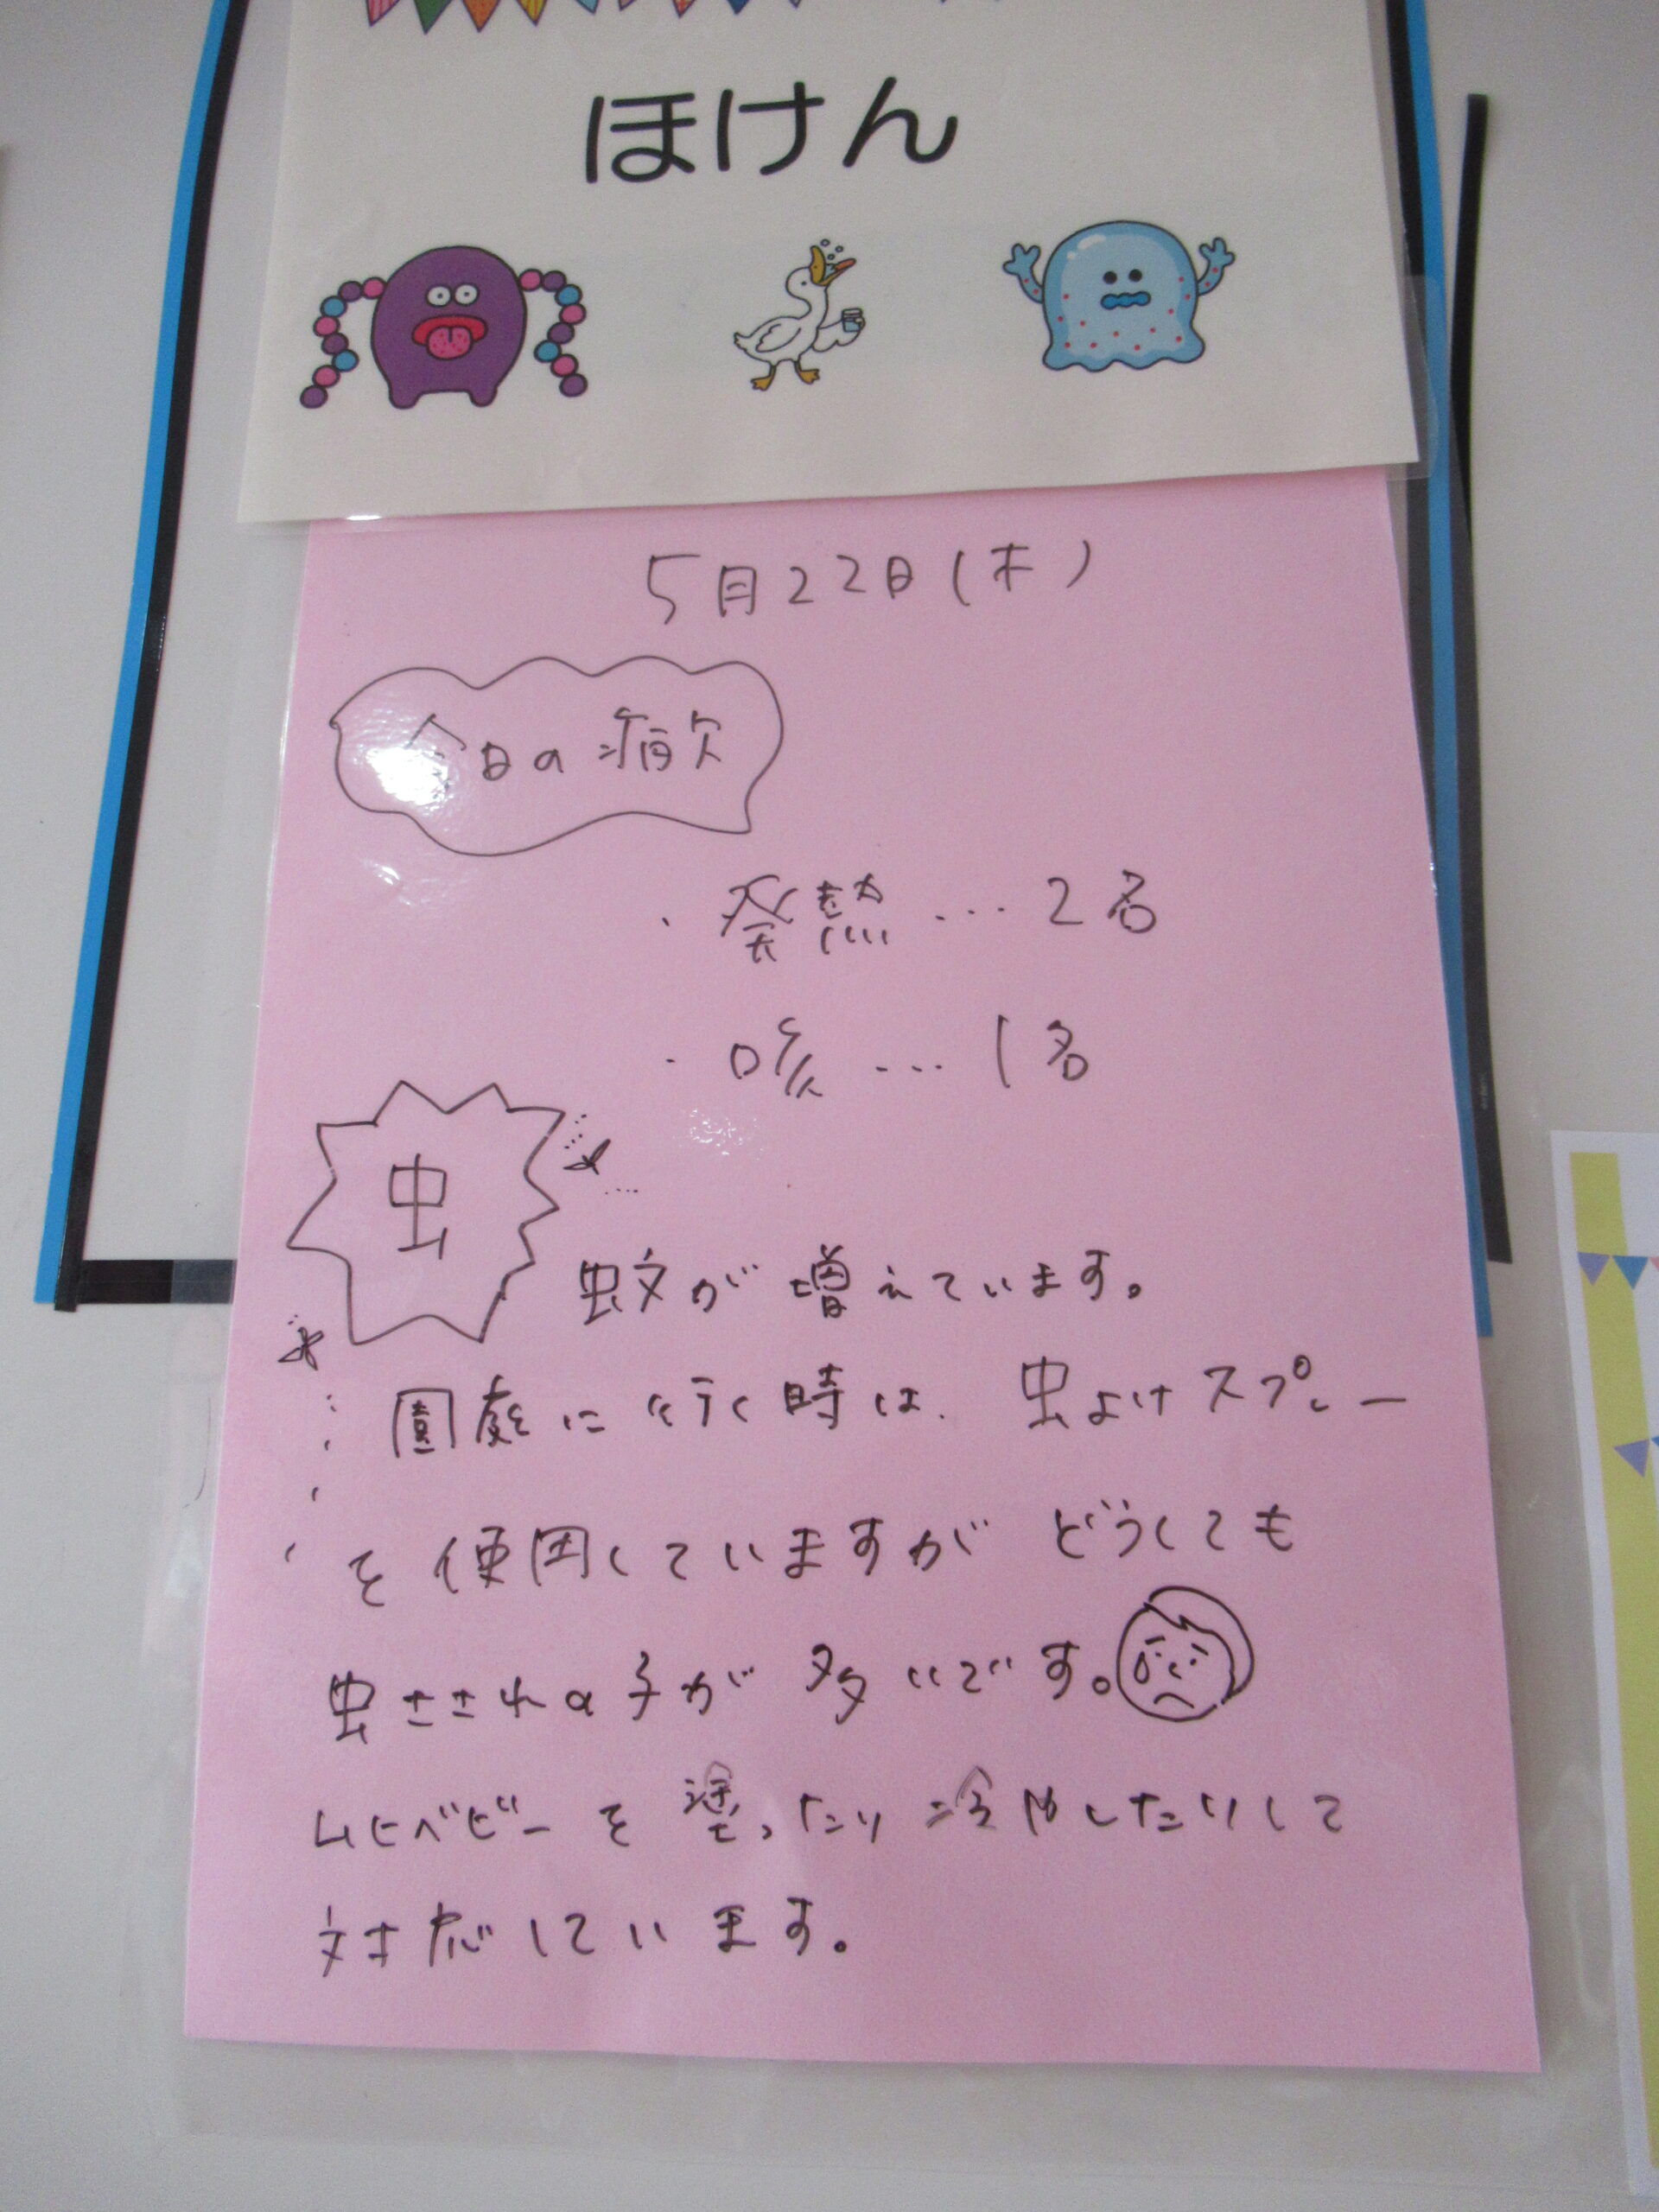 ほけん
5月22日(木)
今日の病欠
・発熱…2名
・咳…1名
虫
蚊が増えています。
園庭に行く時は、虫よけスプレー
を使用していますがどうしても
虫さされの子が多いです。
ムヒベビーを塗ったり冷やしたりして
対応しています。